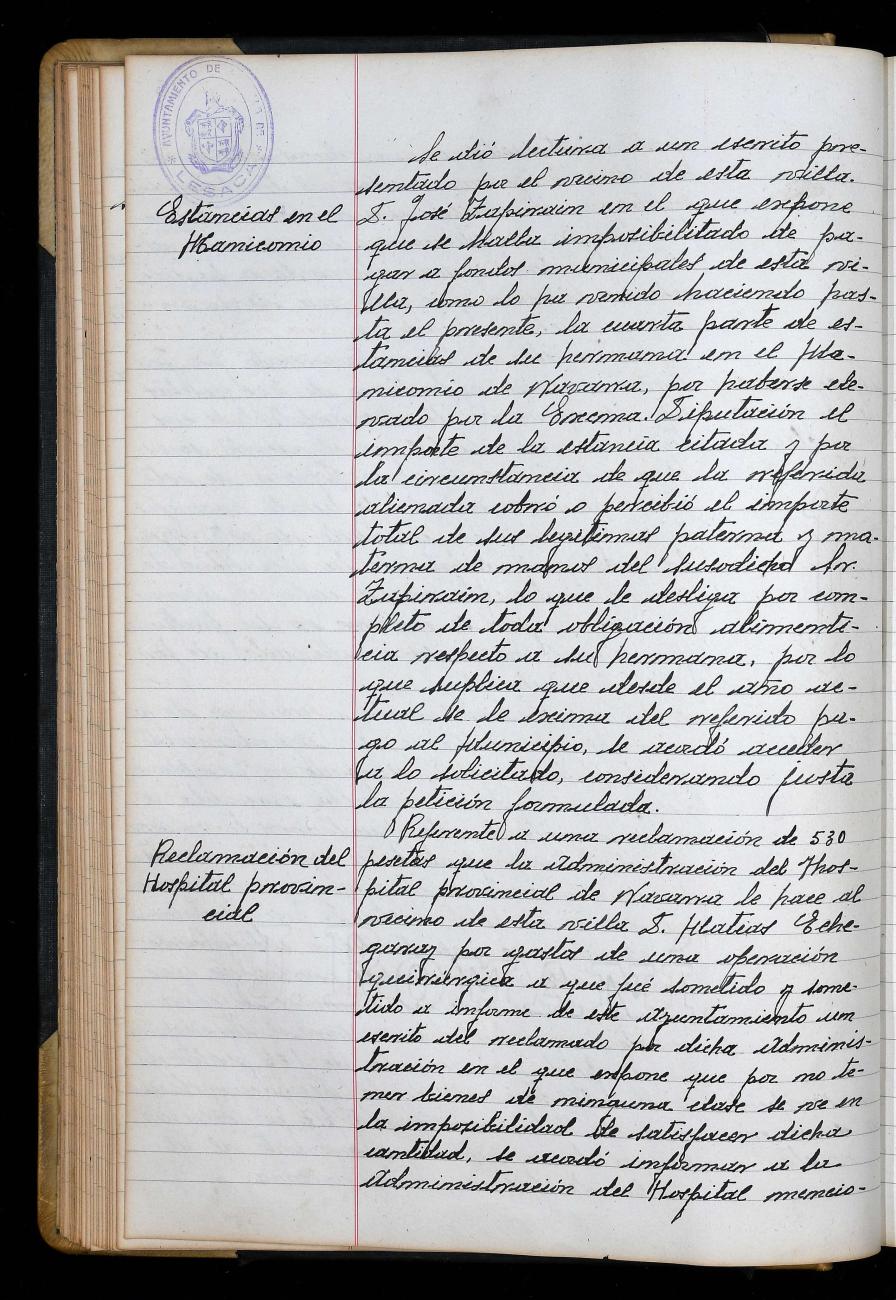 AYUNTAMIENTO DE
LESACA
Se dió lectura a un escrito pre-
sentado por el vecino de esta villa
Estancias en el
Manicomio
D. José Zapirain en el que expone
que se halla imposibilitado de pa-
gar a fondos municipales de esta vi-
lla, como lo ha venido haciendo has-
ta el presente, la cuarta parte de es-
tancias de su hermana en el Ma-
nicomio de Navarra, por haberse ele-
vado por la Excma. Diputación el
importe de la estancia citada y por
la circunstancia de que la referida
alienada cobró o percibió el importe
total de sus legítimas paterna y ma-
terna de manos del susodicho Sr.
Zapirain, lo que le desliga por com-
pleto de toda obligación alimenti-
cia respecto a su hermana, por lo
que suplica que desde el año ac-
tual se le exima del referido pa-
go al Municipio, se acordó acceder
a lo solicitado, considerando justa
la petición formulada.
Reclamación del
Hospital provin-
cial
Referente a una reclamación de 530
pesetas que la Administración del Hos-
pital provincial de Navarra le hace al
vecino de esta villa D. Matias Eche-
garay por gastos de una operación
quirúrgica a que fué sometido y some-
tido a informe de este Ayuntamiento un
escrito del reclamado por dicha Adminis-
tración en el que expone que por no te-
ner bienes de ninguna clase se ve en
la imposibilidad de satisfacer dicha
cantidad, se acordó informar a la
Administración del Hospital mencio-